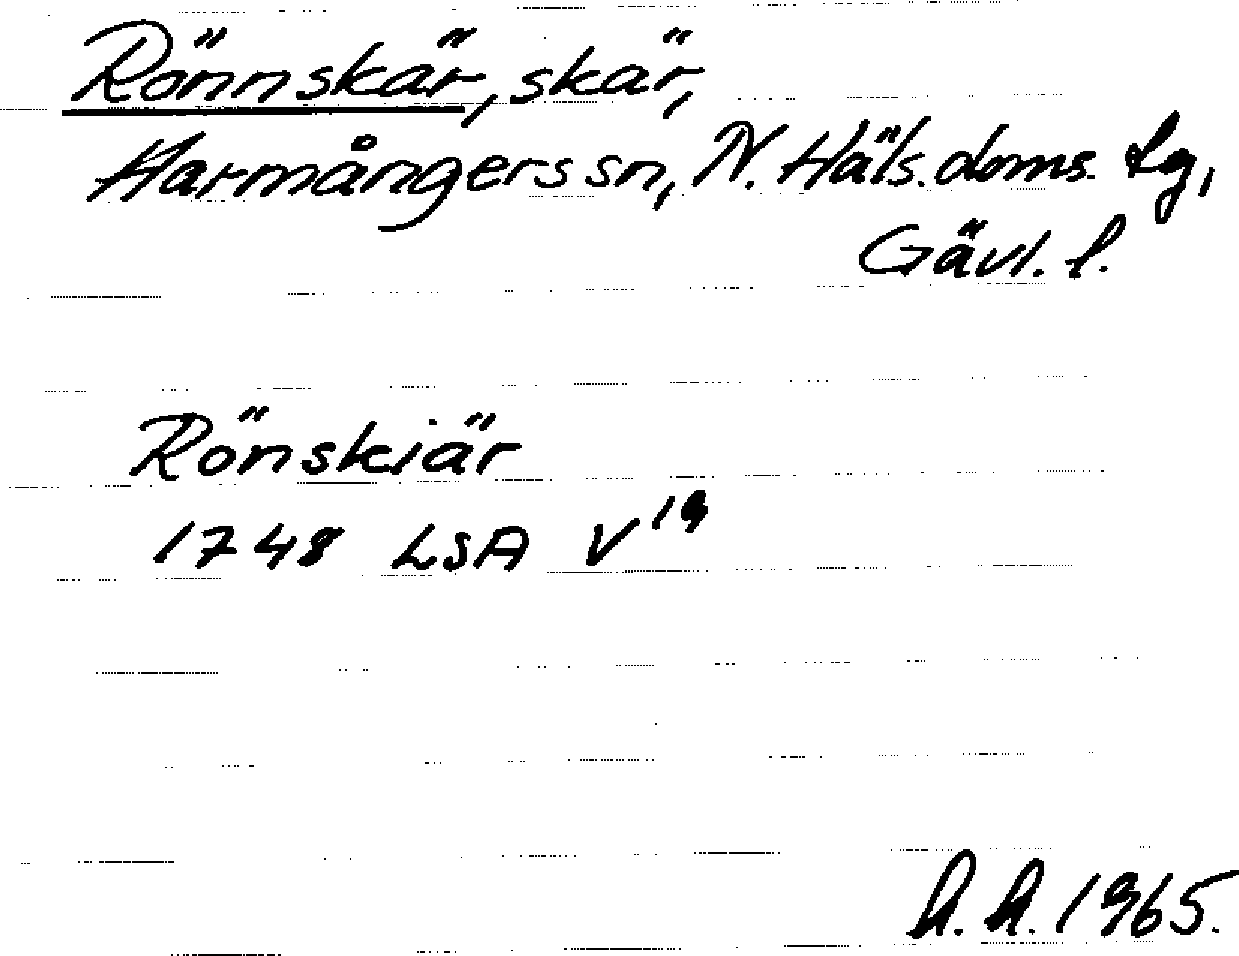 Rönnskär, skär,
Harmångers sn, N. Häls. doms. lg,
Gävl. l.
Rönskiär
1748 LSA V¹⁹
h. h. 1965.